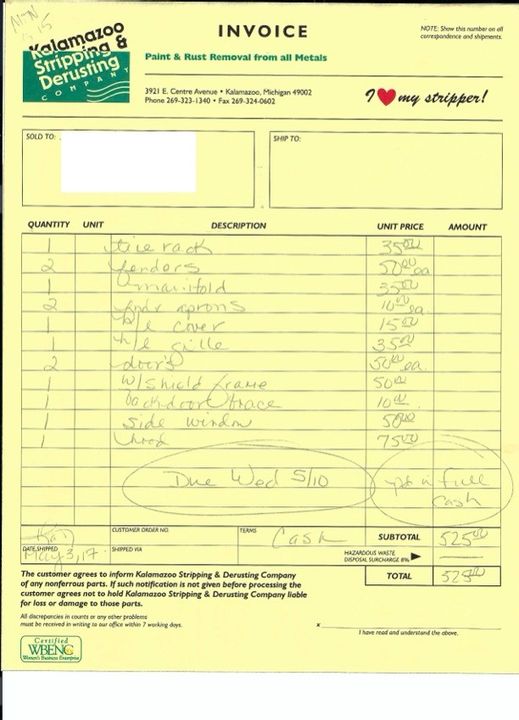 INVOICE
NOTE: Show this number on all
correspondence and shipments.
Kalamazoo
Stripping &
Derusting
COMPANY
Paint & Rust Removal from all Metals
3921 E. Centre Avenue • Kalamazoo, Michigan 49002
Phone 269-323-1340 • Fax 269-324-0602
I ♥ my stripper!
SOLD TO:
SHIP TO:
QUANTITY UNIT DESCRIPTION UNIT PRICE AMOUNT
1 tire rack 35.00
2 fenders 50.00 ea
1 manifold 35.00
2 fndr aprons 10.00 ea.
1 h/l cover 15.00
1 h/l gille 35.00
2 door's 50.00 ea.
1 w/shield frame 50.00
1 back door brace 10.00
1 side window 50.00
1 hood 75.00
Due Wed 5/10 pd in full
cash
CUSTOMER ORDER NO. TERMS Cash SUBTOTAL 525.00
DATE SHIPPED May 3, 17 SHIPPED VIA
HAZARDOUS WASTE
DISPOSAL SURCHARGE 8%
TOTAL 525.00
The customer agrees to inform Kalamazoo Stripping & Derusting Company
of any nonferrous parts. If such notification is not given before processing the
customer agrees not to hold Kalamazoo Stripping & Derusting Company liable
for loss or damage to those parts.
All discrepancies in counts or any other problems
must be received in writing to our office within 7 working days.
x
I have read and understand the above.
Certified
WBENC
Women's Business Enterprise